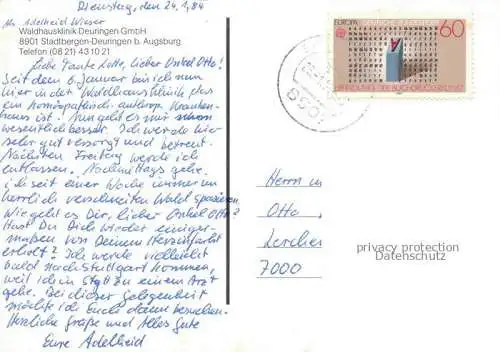 Dienstag, den 24.1.84
Adelheid Wieser
Waldhausklinik Deuringen GmbH
8901 Stadtbergen-Deuringen b. Augsburg
Telefon (08 21) 43 10 21
Liebe Tante Lotte, lieber Onkel Otto!
Seit dem 6. Januar bin ich nun
hier in der Waldhausklinik, das
ein homöopathisch-anthrop. Kranken-
haus ist. Nun geht es mir schon
wesentlich besser. Ich werde hier
sehr gut versorgt und betreut.
Nächsten Freitag werde ich
entlassen. Nachmittags gehe
ich seit einer Woche immer im
herrlich verschneiten Wald spazieren.
Wie geht es Dir, lieber Onkel Otto?
Hast Du Dich wieder einiger-
maßen von Deinem Herzinfarkt
erholt? Ich werde vielleicht
bald nach Stuttgart kommen,
weil ich in Stgt zu einem Arzt
gehe. Bei dieser Gelegenheit
möchte ich Euch dann besuchen.
Herzliche Grüße und Alles Gute
Eure Adelheid
EUROPA
60
ERFINDUNG DES BUCHDRUCKS
Herrn
Otto
Lercher
7000
privacy protection
Datenschutz